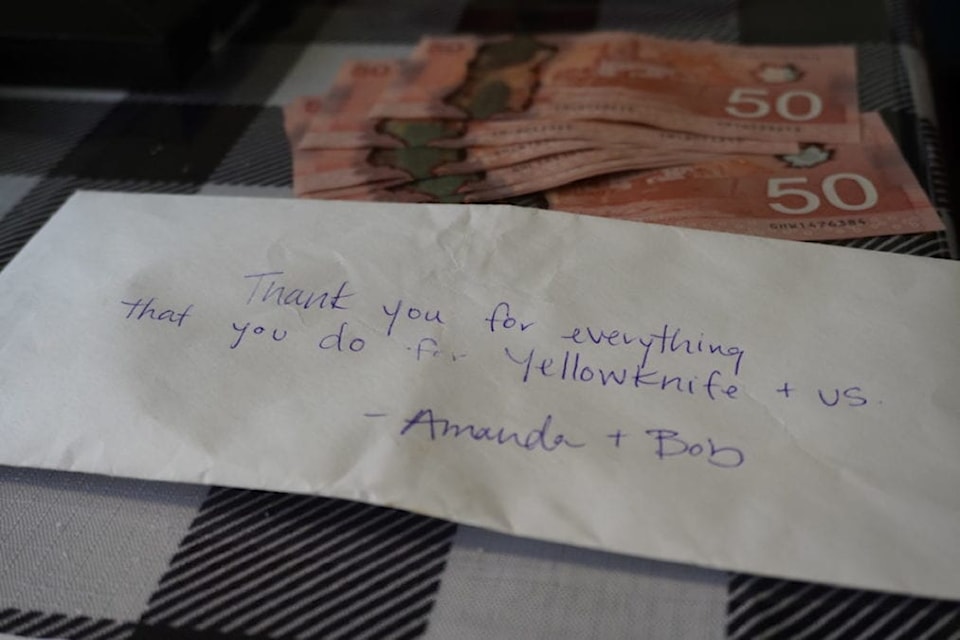 50
50
GHW1476384
Thank you for everything
that you do for Yellowknife + us.
- Amanda + Bob